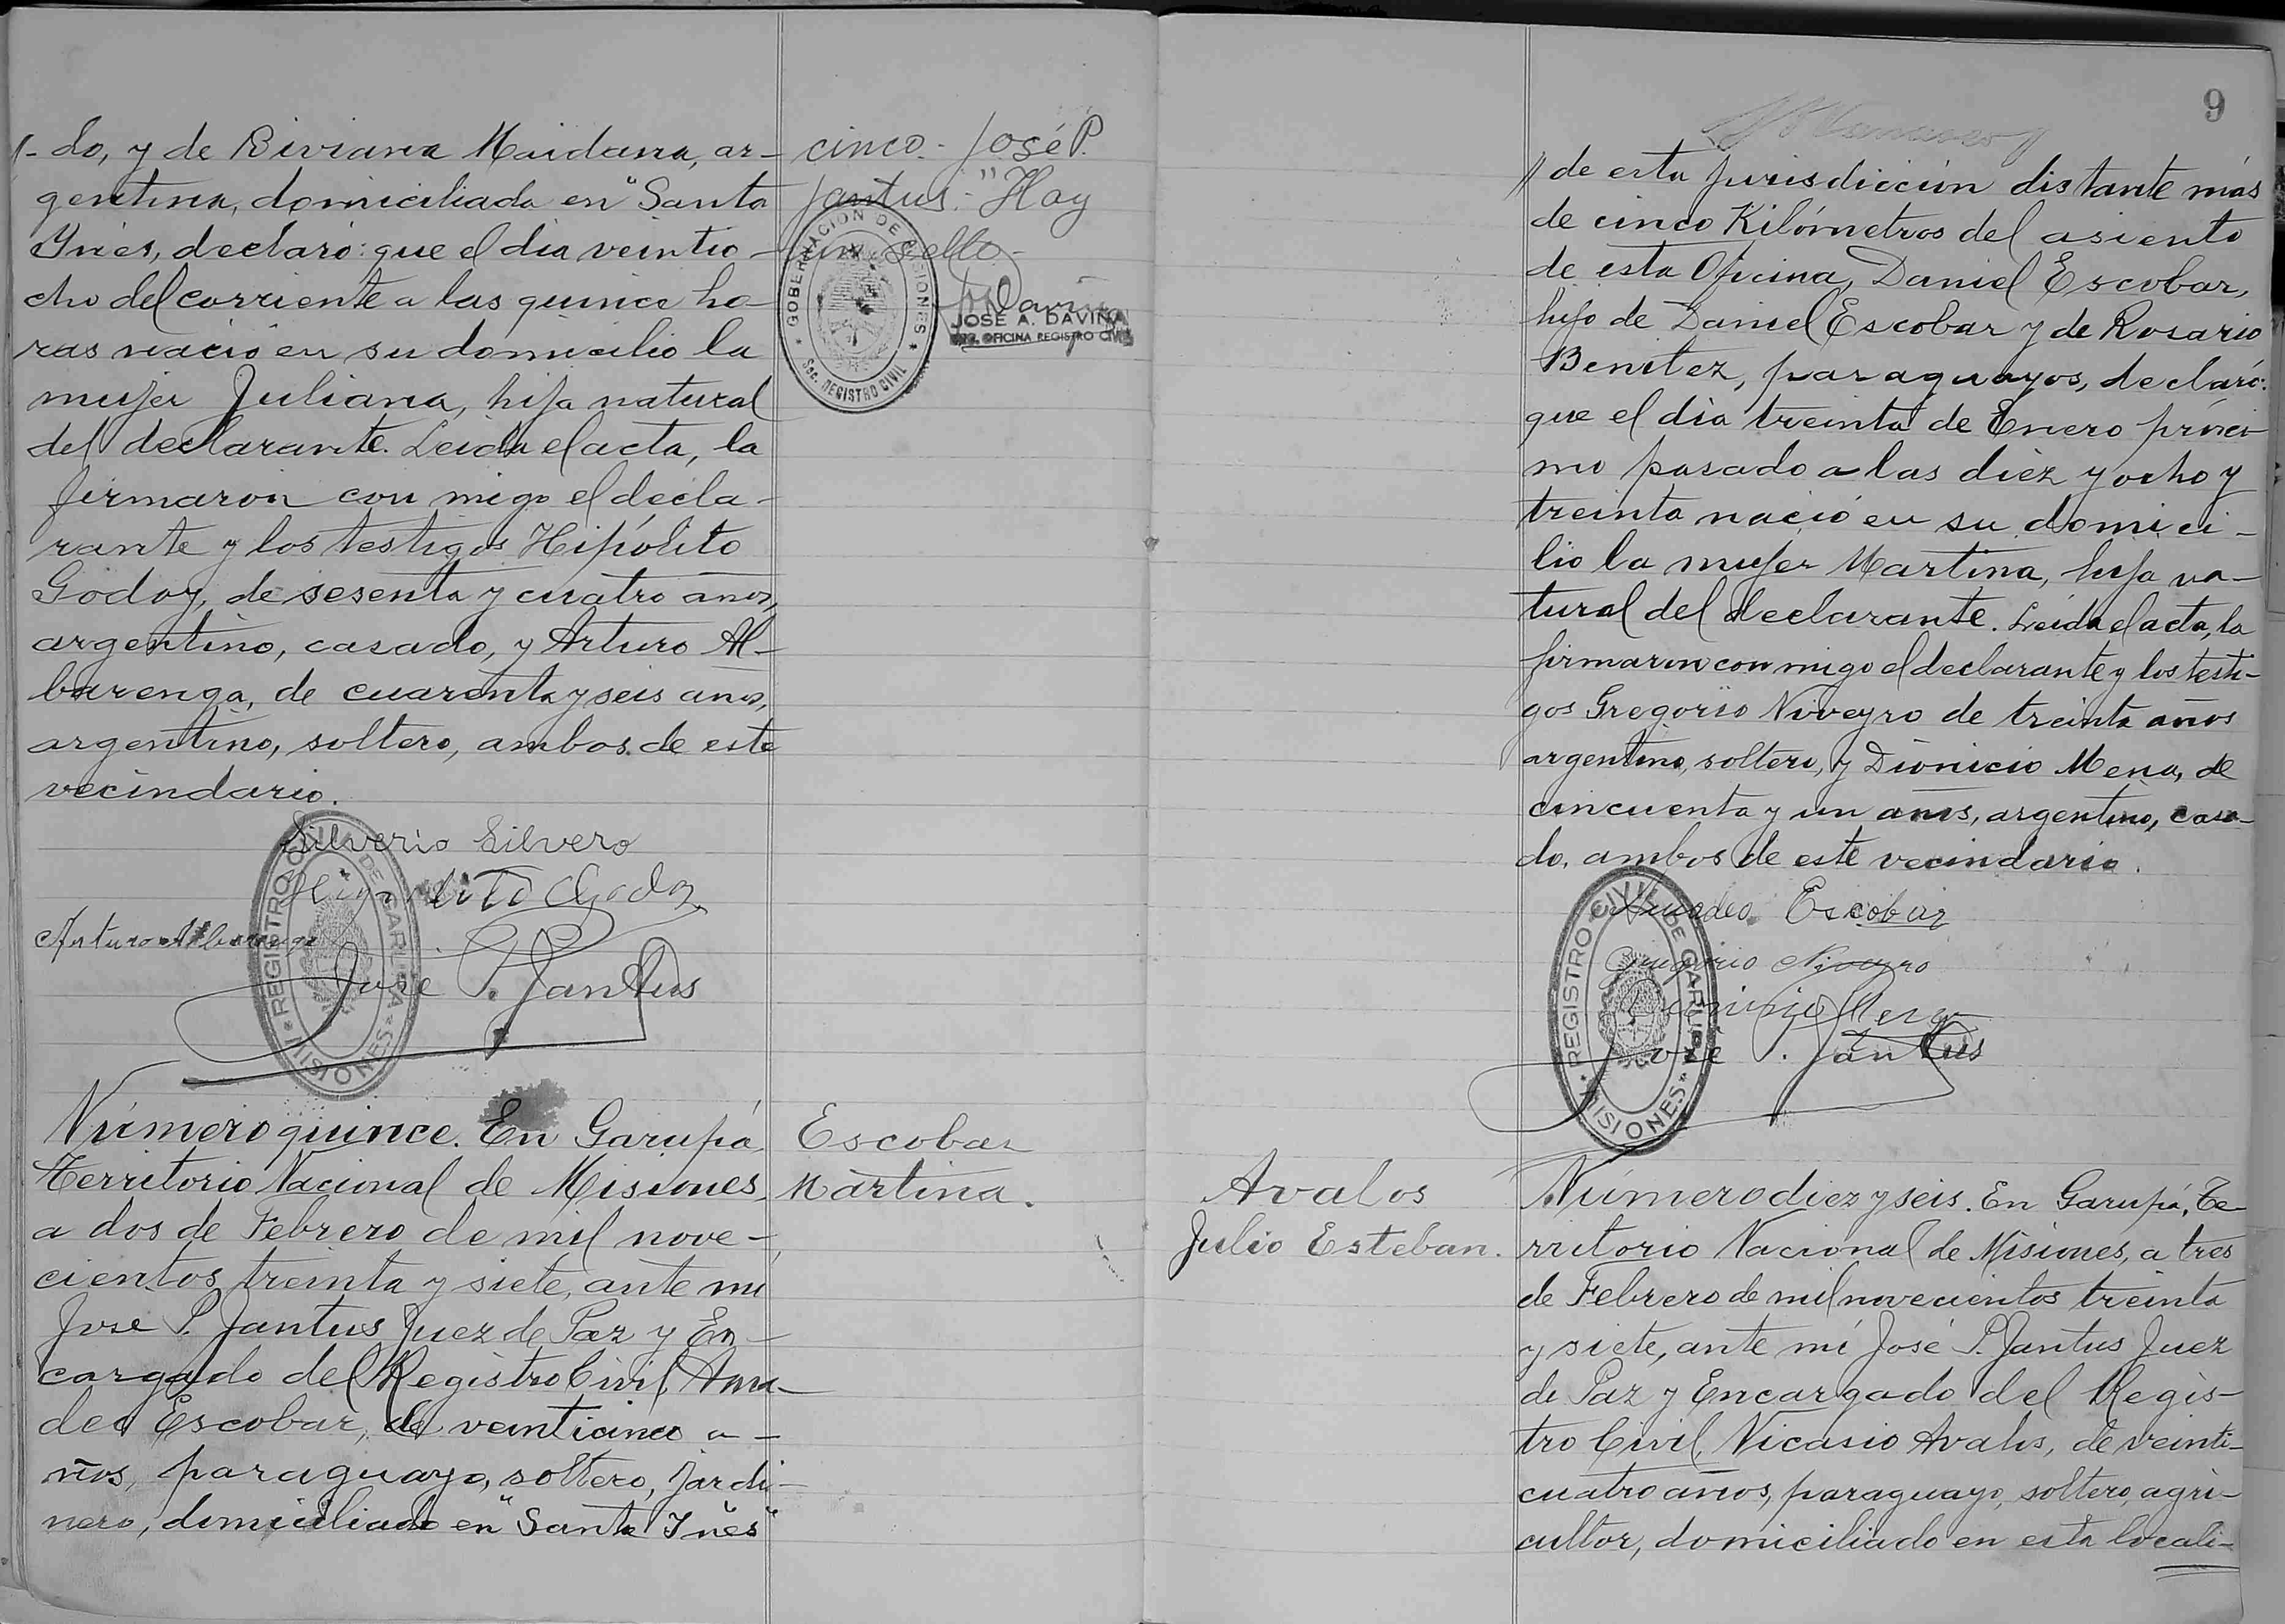 do, y de Biviana Maidana, ar-
gentina, domiciliada en "Santa
Ynés, declaró: que el dia veintio-
cho del corriente a las quince ho-
ras nació en su domicilio la
mujer Juliana, hija natural
del declarante. Leida el acta, la
firmaron con migo el decla-
rante y los testigos Hipólito
Godoy, de sesenta y cuatro años,
argentino, casado, y Arturo Al-
barenga, de cuarenta y seis años,
argentino, soltero, ambos de este
vecindario.
Silverio Silvero
Hipolito Godoy
Arturo Albarenga
José P. Jantus
REGISTRO CIVIL DE GARUPA
MISIONES
Número quince. En Garupá
Territorio Nacional de Misiones,
a dos de Febrero de mil nove-
cientos treinta y siete, ante mi
Jose P. Jantus Juez de Paz y En-
cargado del Registro Civil, Ama-
deo Escobar, de veinticinco a-
ños, paraguayo, soltero, jardi-
nero, domiciliado en "Santa Ynés"
cinco.- José P.
Jantus.- "Hay
un sello.-
GOBERNACION DE MISIONES
Sec. REGISTRO CIVIL
JOSE A. DAVIÑA
OFICINA REGISTRO CIVIL
Escobar
Martina.
9
// de esta jurisdicción distante más
de cinco Kilómetros del asiento
de esta Oficina, Daniel Escobar,
hijo de Daniel Escobar y de Rosario
Benitez, paraguayos, declaró:
que el dia treinta de Enero próxi-
mo pasado a las diez y ocho y
treinta nació en su domici-
lio la mujer Martina, hija na-
tural del declarante. Leida el acta, la
firmaron con migo el declarante y los testi-
gos Gregorio Niveyro de treinta años
argentino, soltero, y Dionicio Mena, de
cincuenta y un años, argentino, casa-
do, ambos de este vecindario.
Amadeo Escobar
Gregorio Niveyro
Dionicio Mena
José P. Jantus
REGISTRO CIVIL DE GARUPA
MISIONES
Avalos
Julio Esteban.
Número diez y seis. En Garupá, Te-
rritorio Nacional de Misiones, a tres
de Febrero de mil novecientos treinta
y siete, ante mi José P. Jantus Juez
de Paz y Encargado del Regis-
tro Civil, Nicasio Avalos, de veinti-
cuatro años, paraguayo, soltero, agri-
cultor, domiciliado en esta locali-